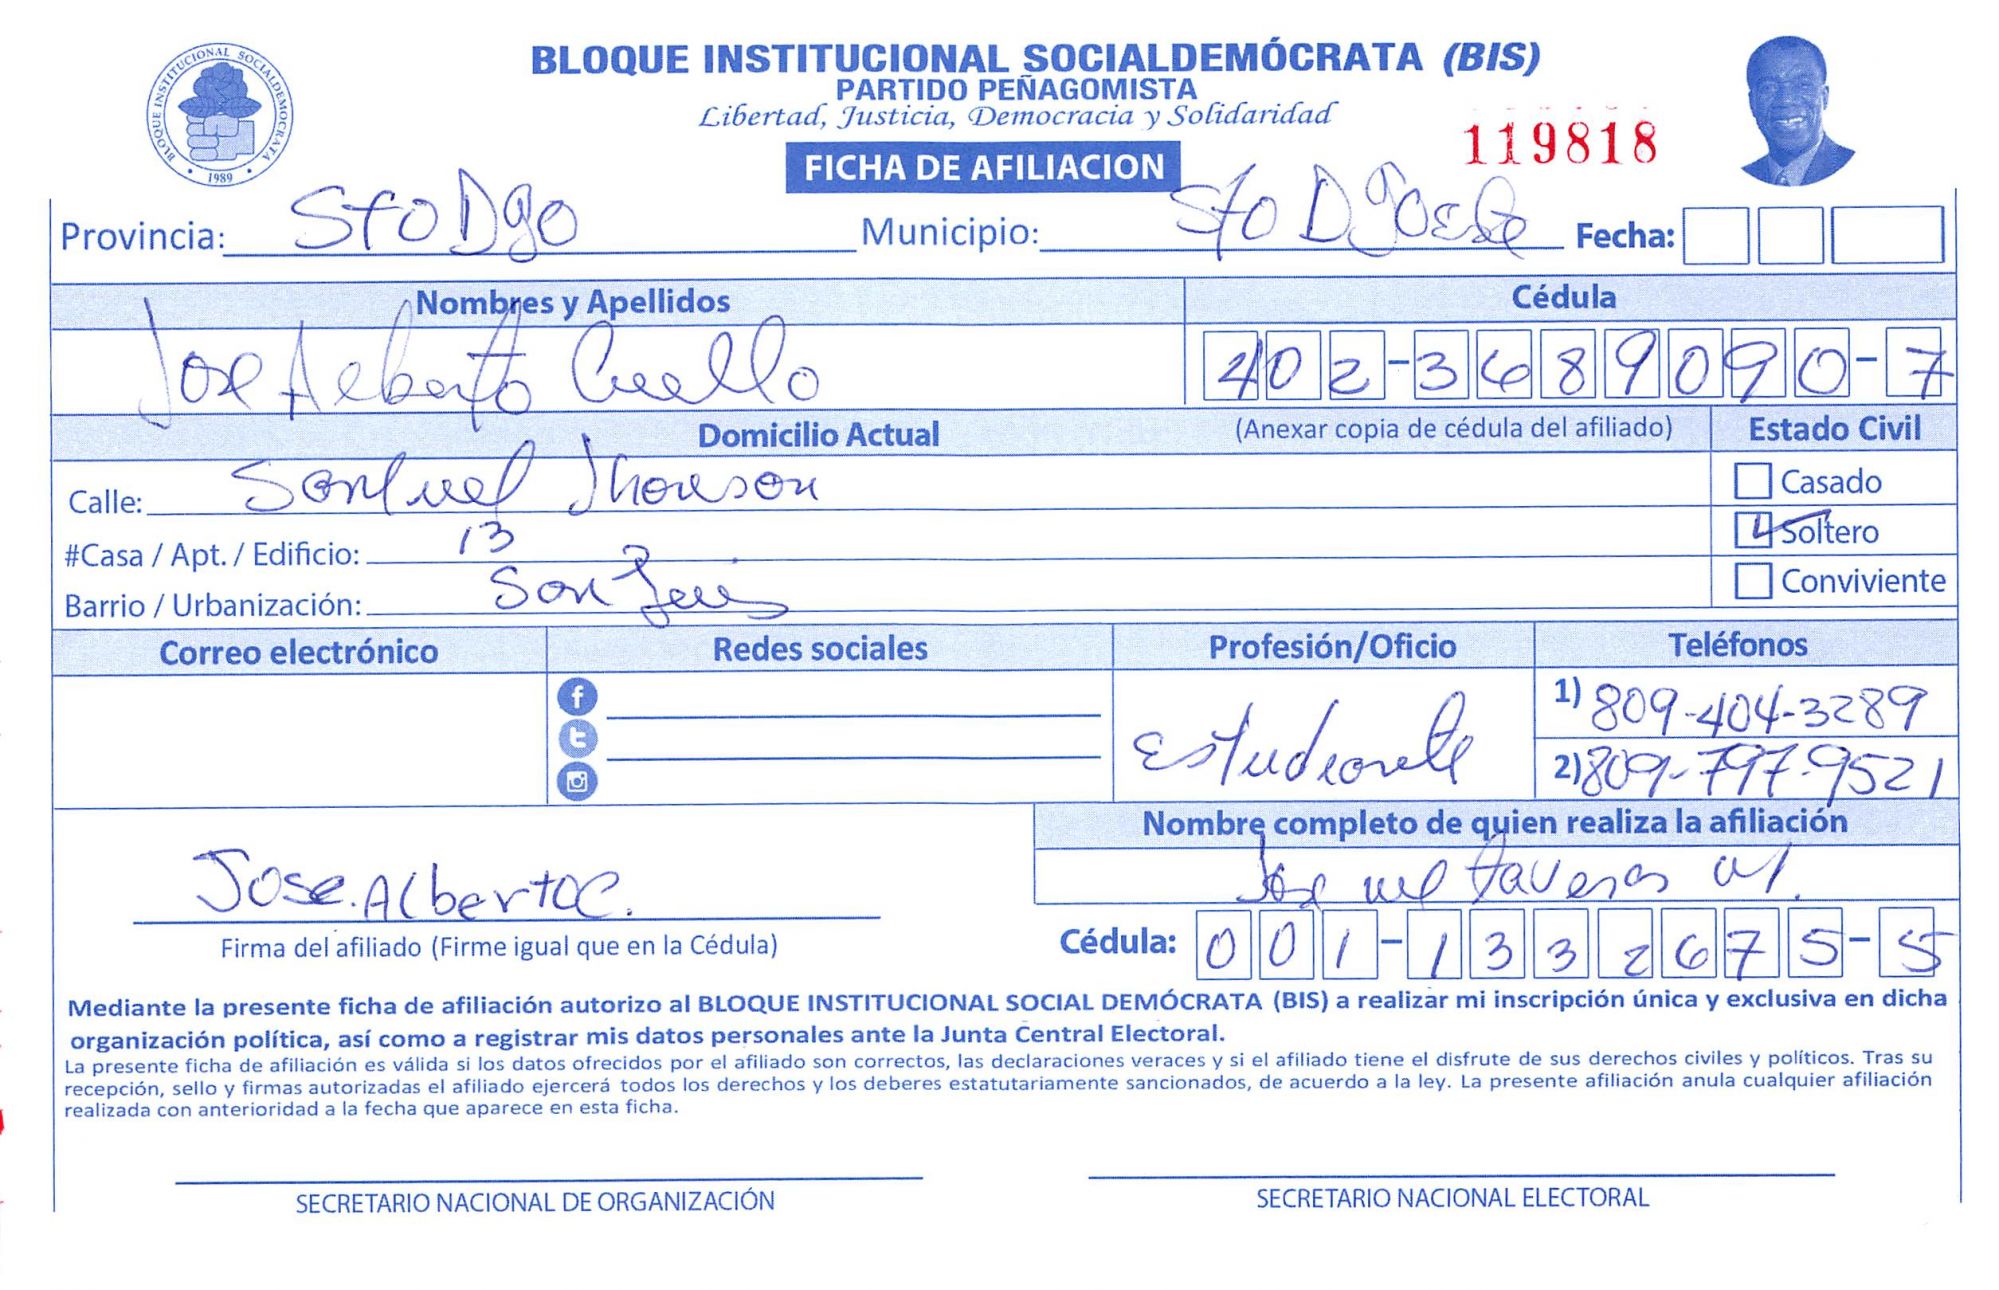 BLOQUE INSTITUCIONAL SOCIALDEMÓCRATA (BIS)
PARTIDO PEÑAGOMISTA
Libertad, Justicia, Democracia y Solidaridad
BLOQUE INSTITUCIONAL SOCIALDEMOCRATA
1989
119818
FICHA DE AFILIACION
Provincia: Sto Dgo Municipio: Sto Dgo Este Fecha:
Nombres y Apellidos Cédula
Jose Alberto Cuello 402-3689090-7
Domicilio Actual (Anexar copia de cédula del afiliado) Estado Civil
Calle: Samuel Jhonson Casado
#Casa / Apt. / Edificio: 13 Soltero
Barrio / Urbanización: San Luis Conviviente
Correo electrónico Redes sociales Profesión/Oficio Teléfonos
Estudiante 1) 809-404-3289
2) 809-797-9521
Nombre completo de quien realiza la afiliación
Jose Alberto C. Jose Taveras
Firma del afiliado (Firme igual que en la Cédula) Cédula: 001-1332675-5
Mediante la presente ficha de afiliación autorizo al BLOQUE INSTITUCIONAL SOCIAL DEMÓCRATA (BIS) a realizar mi inscripción única y exclusiva en dicha
organización política, así como a registrar mis datos personales ante la Junta Central Electoral.
La presente ficha de afiliación es válida si los datos ofrecidos por el afiliado son correctos, las declaraciones veraces y si el afiliado tiene el disfrute de sus derechos civiles y políticos. Tras su
recepción, sello y firmas autorizadas el afiliado ejercerá todos los derechos y los deberes estatutariamente sancionados, de acuerdo a la ley. La presente afiliación anula cualquier afiliación
realizada con anterioridad a la fecha que aparece en esta ficha.
SECRETARIO NACIONAL DE ORGANIZACIÓN SECRETARIO NACIONAL ELECTORAL